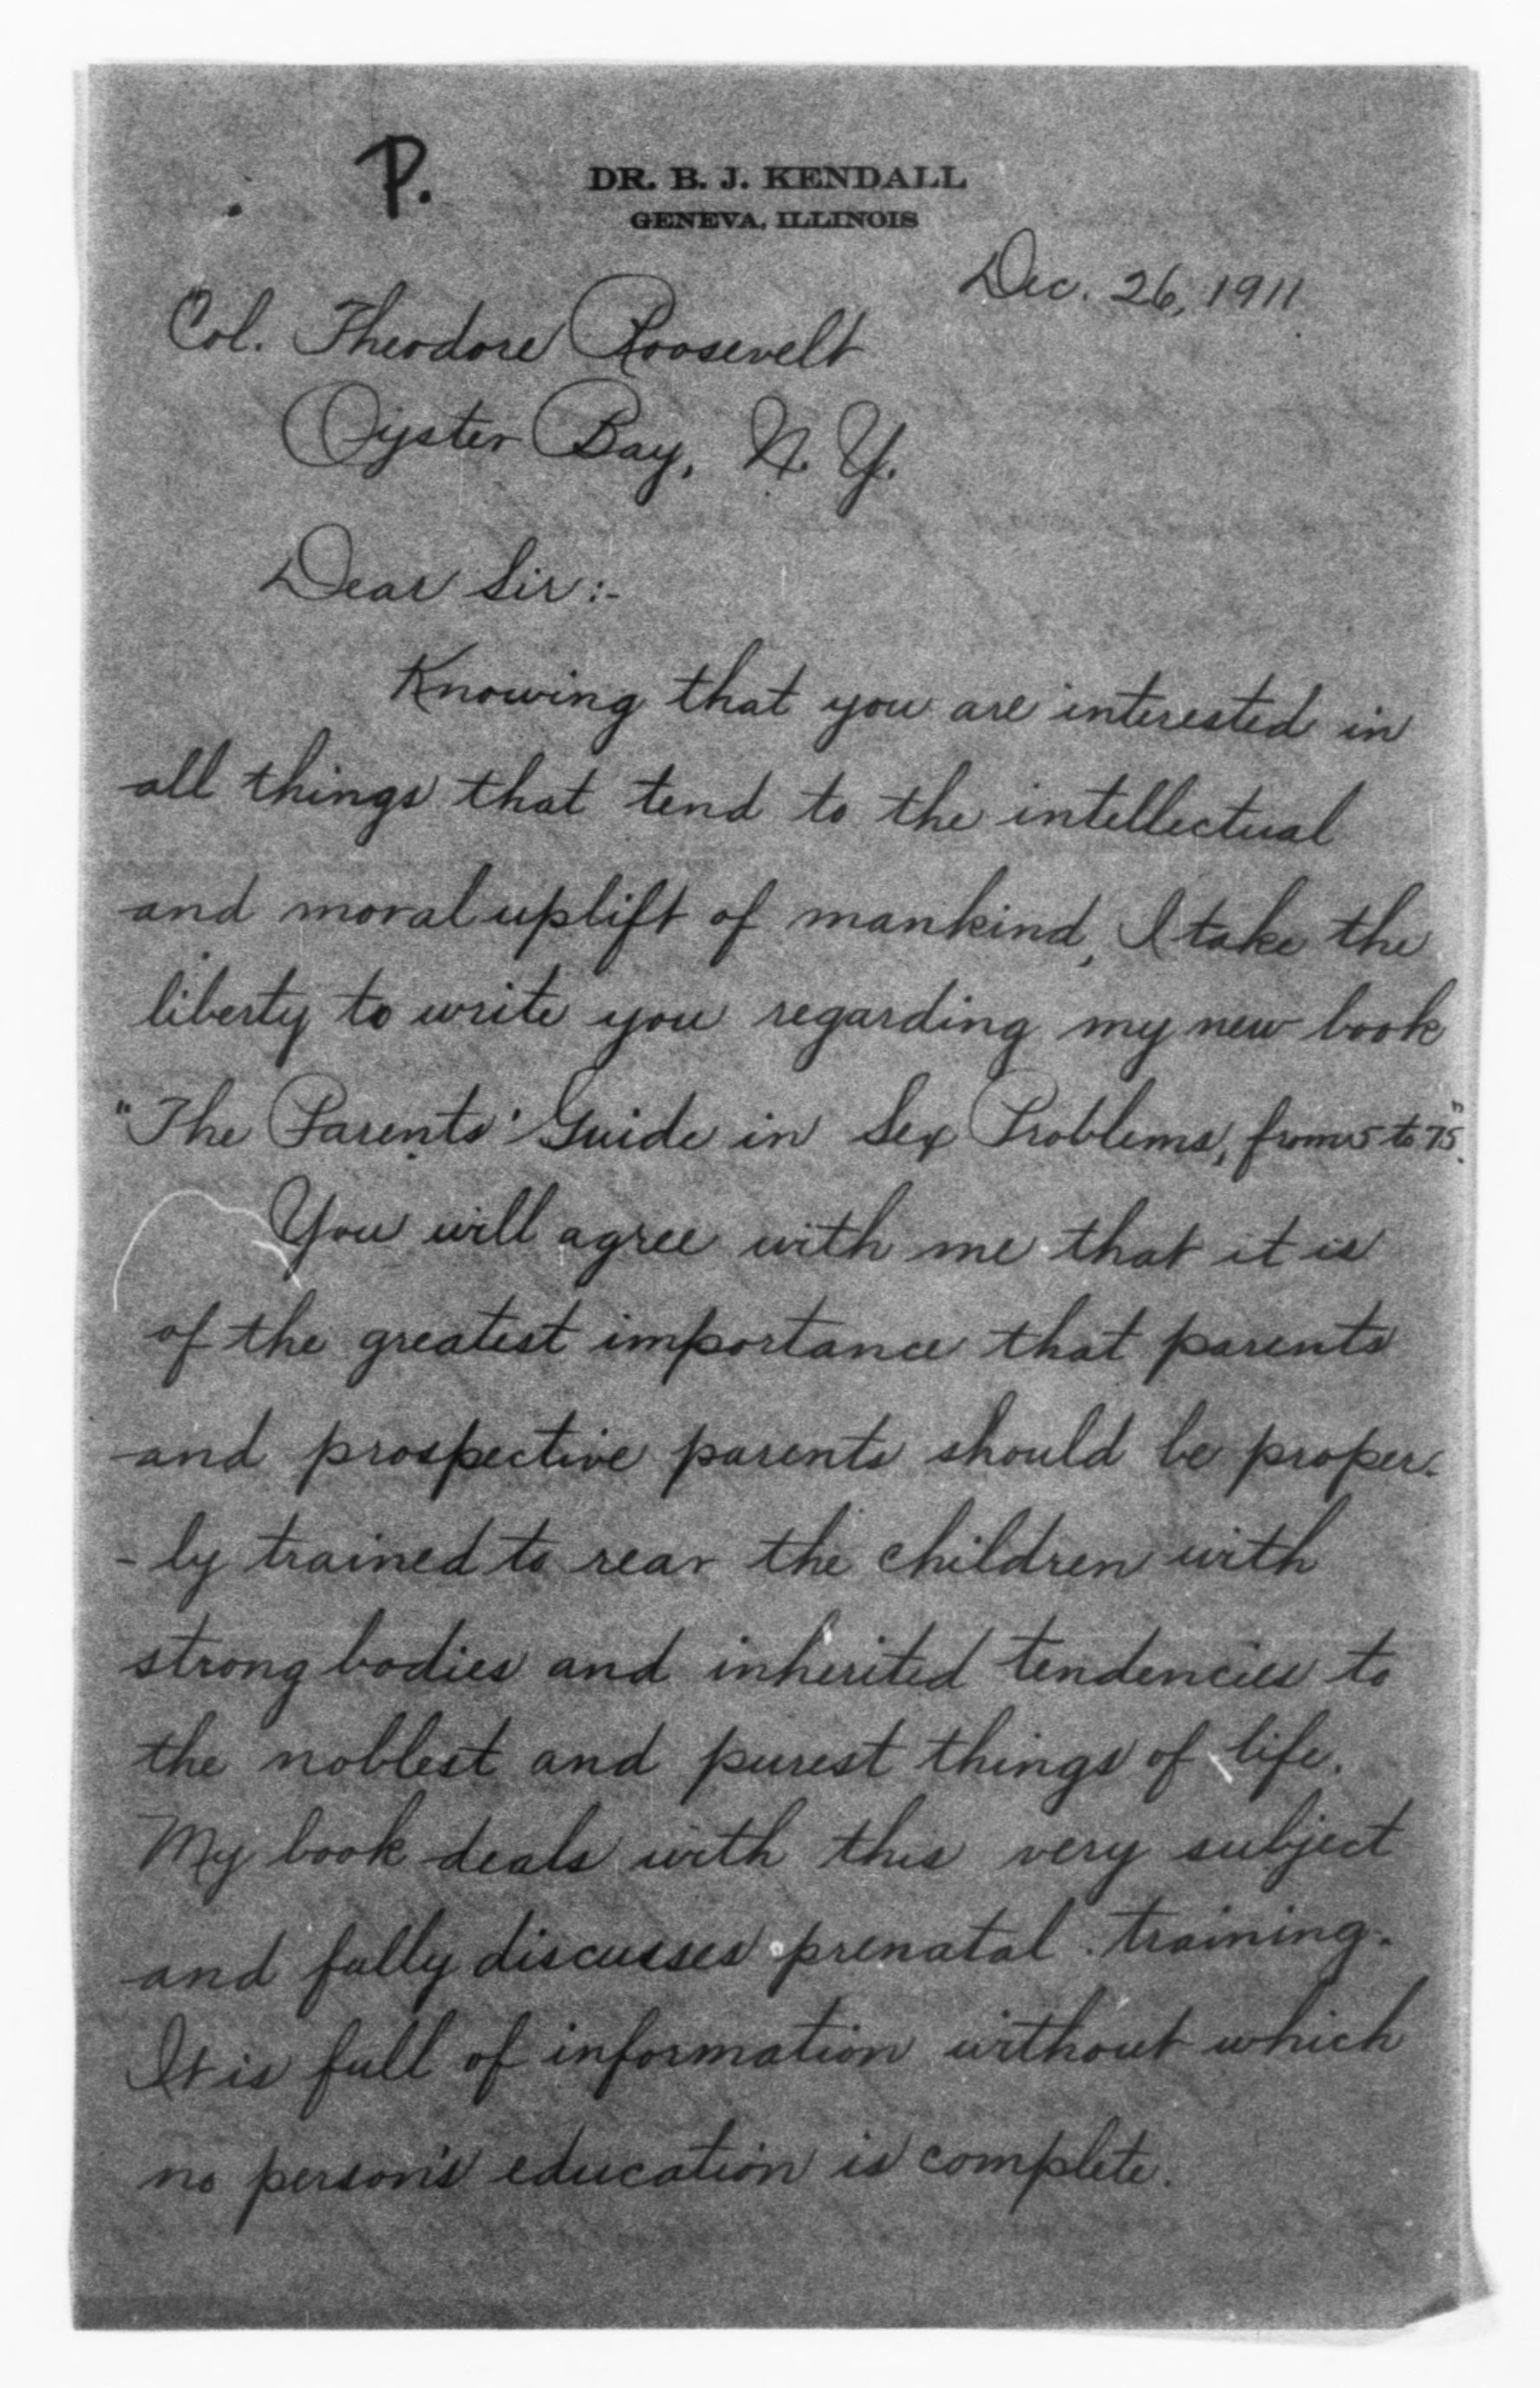 P.
DR. B. J. KENDALL
GENEVA, ILLINOIS
Dec. 26, 1911.
Col. Theodore Roosevelt
Oyster Bay, N. Y.
Dear Sir:-
Knowing that you are interested in
all things that tend to the intellectual
and moral uplift of mankind, I take the
liberty to write you regarding my new book
"The Parents' Guide in Sex Problems, from 5 to 75".
You will agree with me that it is
of the greatest importance that parents
and prospective parents should be proper-
-ly trained to rear the children with
strong bodies and inherited tendencies to
the noblest and purest things of life.
My book deals with this very subject
and fully discusses prenatal training.
It is full of information without which
no person's education is complete.